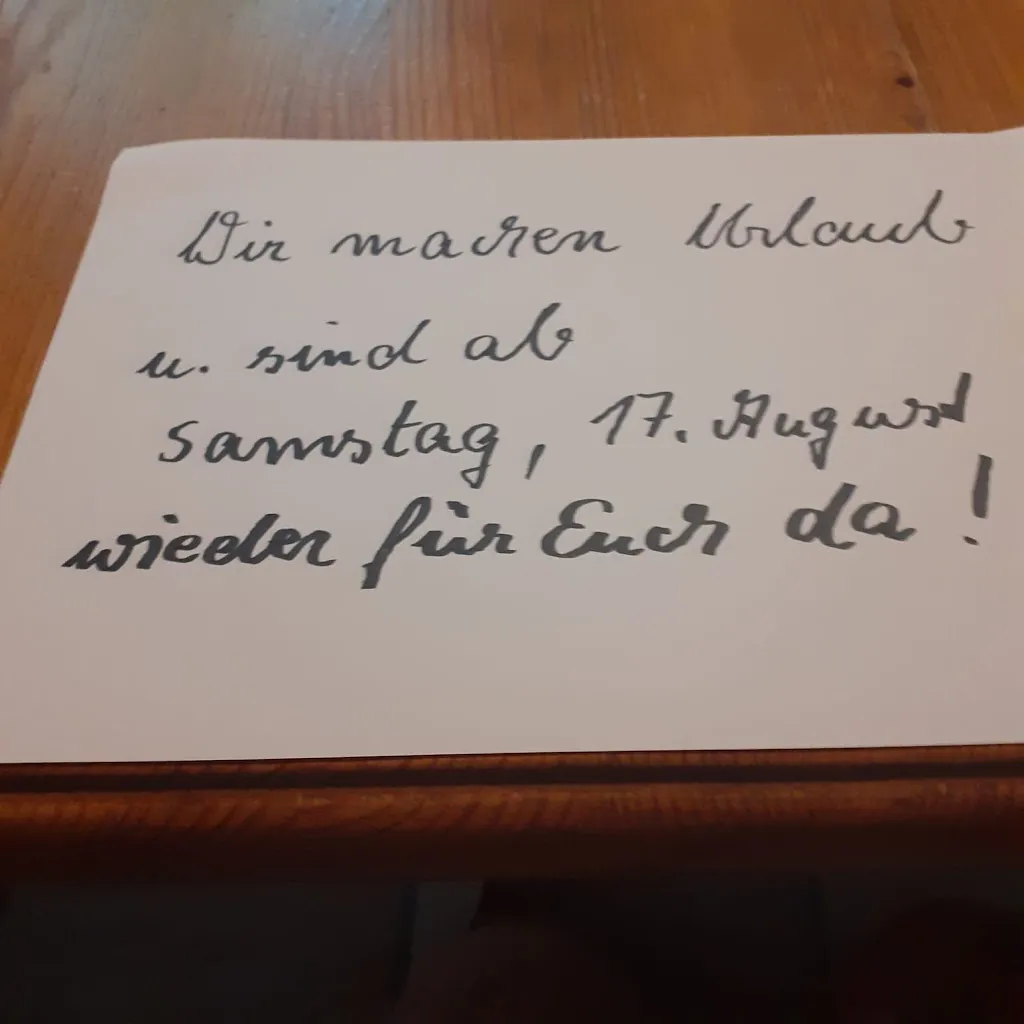 Wir machen Urlaub
u. sind ab
Samstag, 17. August
wieder für Euch da!